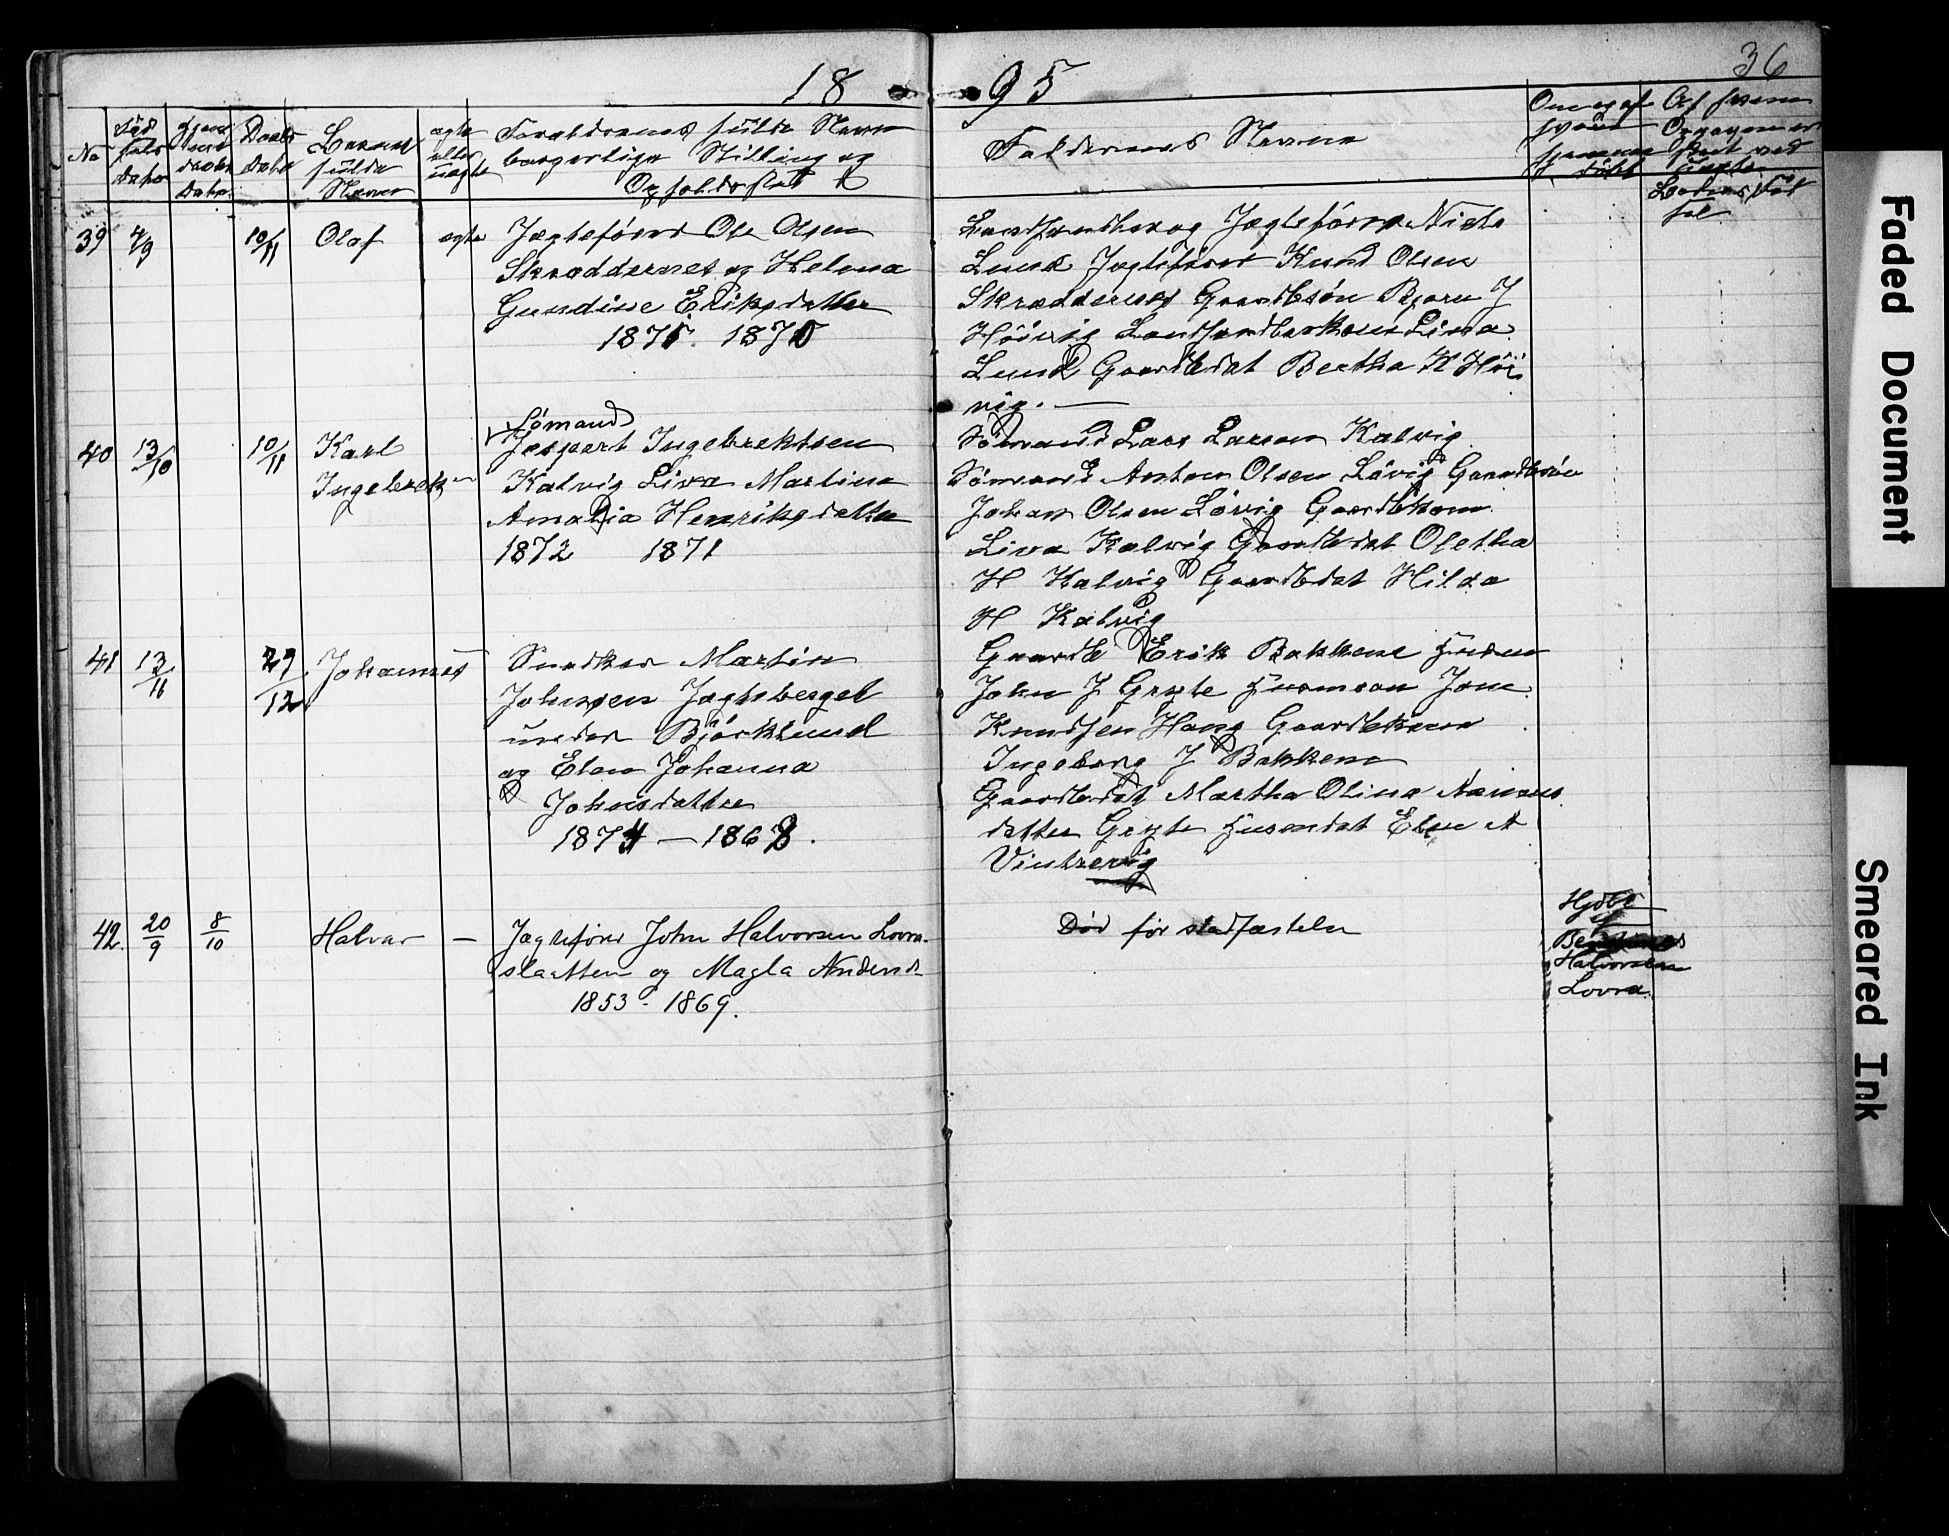 18 95
36
No
Föd
sels
Dato
Daabs
Dato
Barnets
fulde
Navn
ægte
eller
uægte
Forældrenes fulde Navn
borgerlige Stilling og
Opholdssted
Faddernes Navne
Om og af
hvem
hjemme
döbt
39 4/9 10/11 Olaf ægte
Jægtefører Ole Olsen
Skreddernes og Helena
Gundine Eriksdatter
1875. 1870
Landhandler og Jægtefører Niels
Lund Jægtefører Knud Olsen
Skreddernes Gaardbsön Bjørn J
Höivig Landhandlerkone Lina
Lund Gaardbdat Bertha K Höi
vig.
40 13/10 10/11 Karl
Ingebrek
Sömand
Jespert Ingebrektsen
Kalvig Liva Martina
Amalia Henriksdatter
1872 1871
Sömand Lars Larsen Kalvig
Sömand Anton Olsen Lövig Gaardbsön
Johan Olsen Lövig Gaardbkone
Liva Kalvig Gaardbdat Oletha
H Kalvig Gaardbdat Hilda
H Kalvig
41 13/11 29/12 Johannes
Snedker Martin
Johnsen Jægteberget
under Björklund
og Elen Johanna
Johnsdatter
1874 — 1868.
Gaardb Erik Bakkene
John J Gryte Husmson Jone
Knudsen Haug Gaardbkone
Ingeborg J Bakkene
Gaardbdat Martha Olina
datter Gryte Husmdat Elen A
Vintrevig
42. 20/9 8/10 Halvar —
Jægtefører John Halvorsen Lovra-
slaatten og Magla Andersd
1853 - 1869.
Död för stadfæstelse
Hjdbt
af
Halvorsen
Lovra.
Faded Document
Smeared Ink